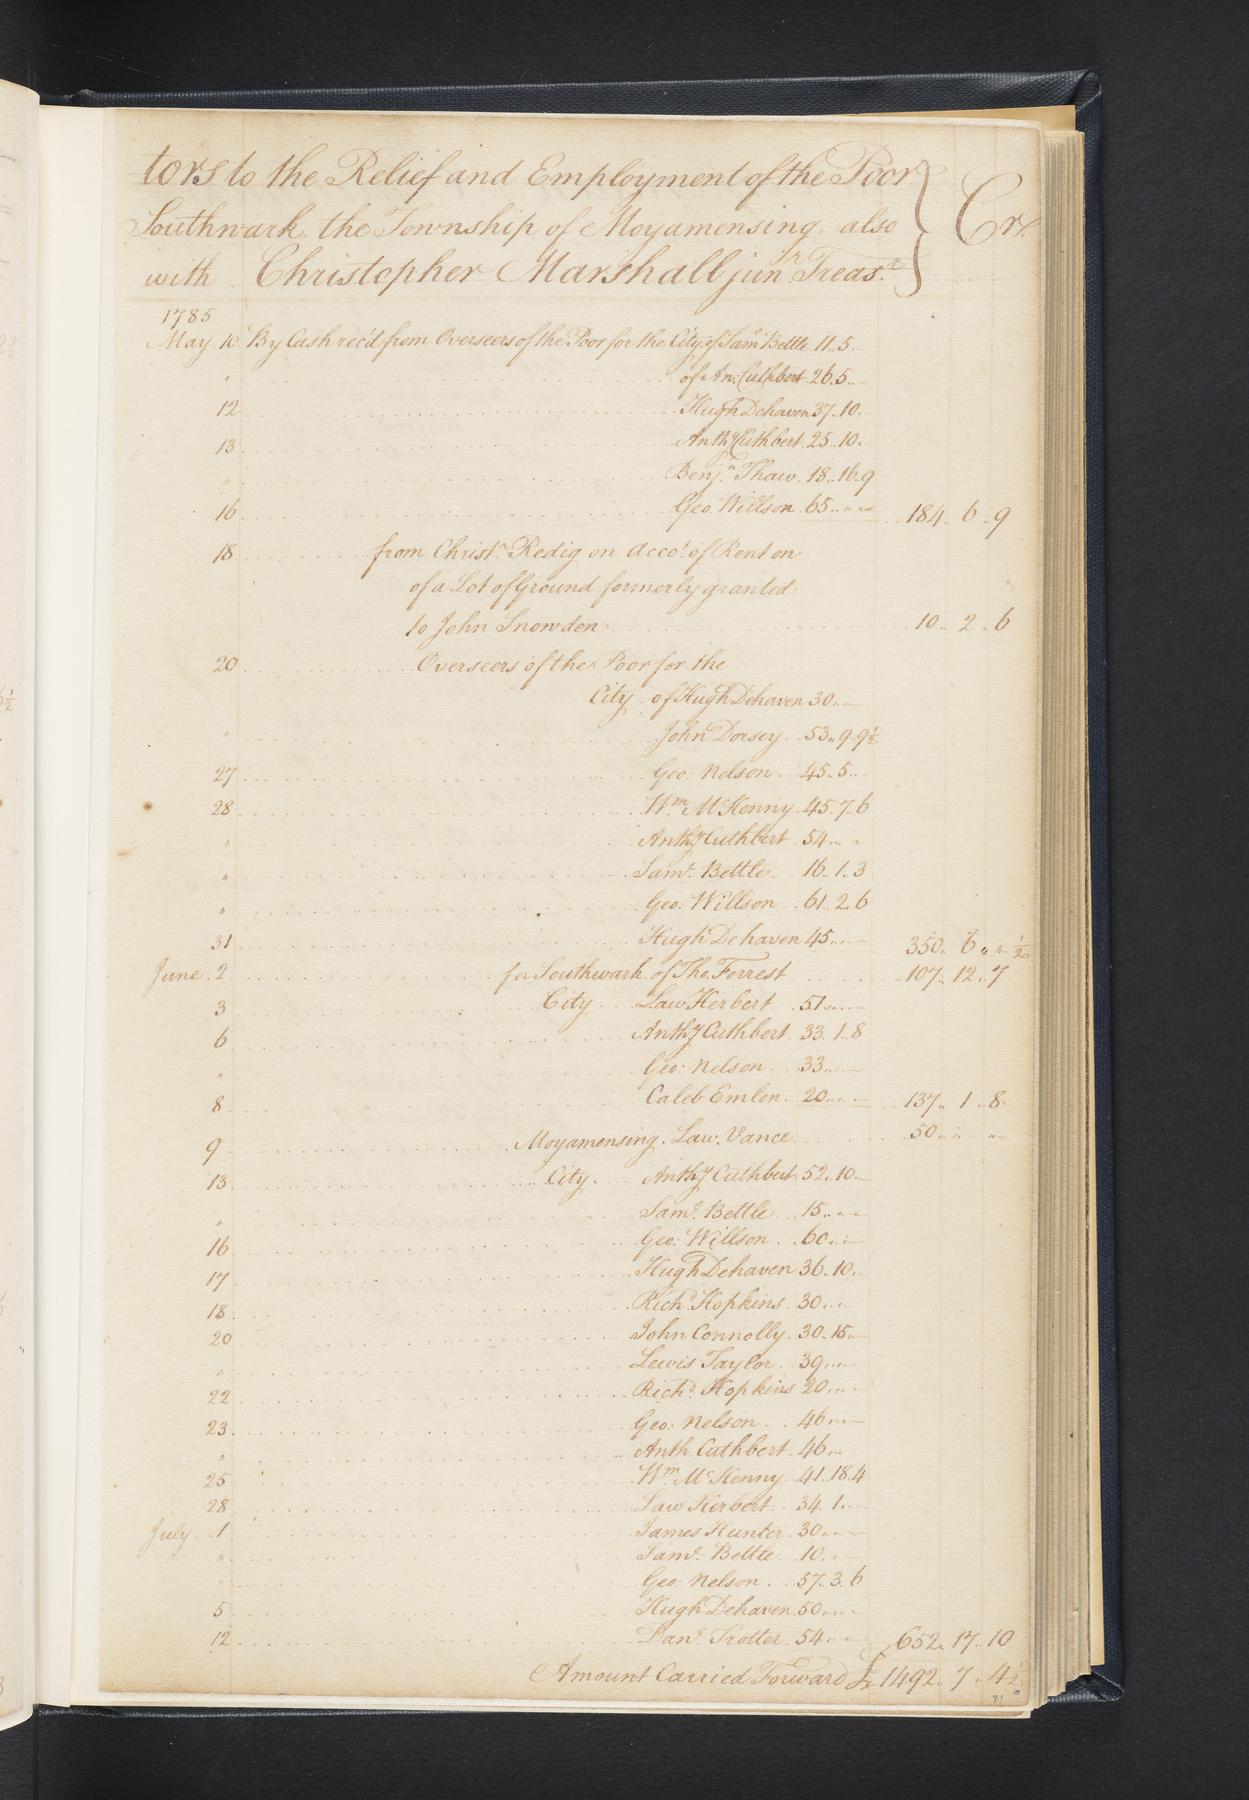 tors to the Relief and Employment of the Poor
Southwark, the Township of Moyamensing, also
with Christopher Marshall junr. Treasr.
Crs.
1785
May 10. By Cash rec'd from Overseers of the Poor for the City of Saml. Bettle 11..5..
" of An. Cuthbert 26.5..
12 Hugh Dehaven 37..10.
13 Anthy Cuthbert 25..10.
" Benjn. Thaw. 18..16.9
16 Geo. Willson 65.. " " 184.. 6..9
18 from Christr. Redig on accot. of Rent on
of a Lot of Ground formerly granted
to John Snowden 10.. 2..6
20 Overseers of the Poor for the
City of Hugh Dehaven 30..
" John Dorsey 53..9.9½
27 Geo: Nelson 45..5..
28 Wm. McKenny 45.7.6
" Anthy Cuthbert 54..
" Saml. Bettle 16.1.3
" Geo: Willson 61..2.6
31 Hugh Dehaven 45.. 350.. 6 .. " ½
June 2 for Southwark of Tho. Forrest 107.. 12..7
3 City Law Herbert 51..
6 Anthy Cuthbert 33.1..8
" Geo: Nelson 33..
8 Caleb Emlen 20.. 137.. 1..8
9 Moyamensing. Law. Vance 50.. " "
13 City. Anthy Cuthbert 52..10.
" Saml. Bettle 15..
16 Geo: Willson 60..
17 Hugh Dehaven 36..10.
18 Richd. Hopkins 30..
20 John Connolly 30..15
" Lewis Taylor 39..
22 Richd. Hopkins 20..
23 Geo: Nelson 46..
" Anth. Cuthbert 46..
25 Wm. McKenny 41..18.4
28 Law Herbert 34.1.
July 1 James Hunter 30..
" Saml. Bettle 10..
" Geo: Nelson 57..3.6
5 Hugh Dehaven 50..
12 Danl. Trotter 54.. 652.. 17..10
Amount Carried Forward £ 1492.. 7..4½